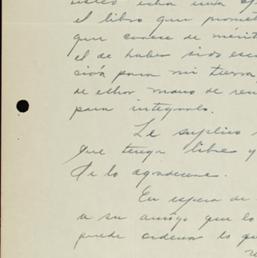 usted esta una
el libro que prome
que carece de mérito
el de haber sido esc
ción para mi tierra
de echar mano de
para integrarlo.
Le suplico
que tenga libre y
se lo agradecere.
En espera de
a su amigo que lo
puede ordenar lo qu